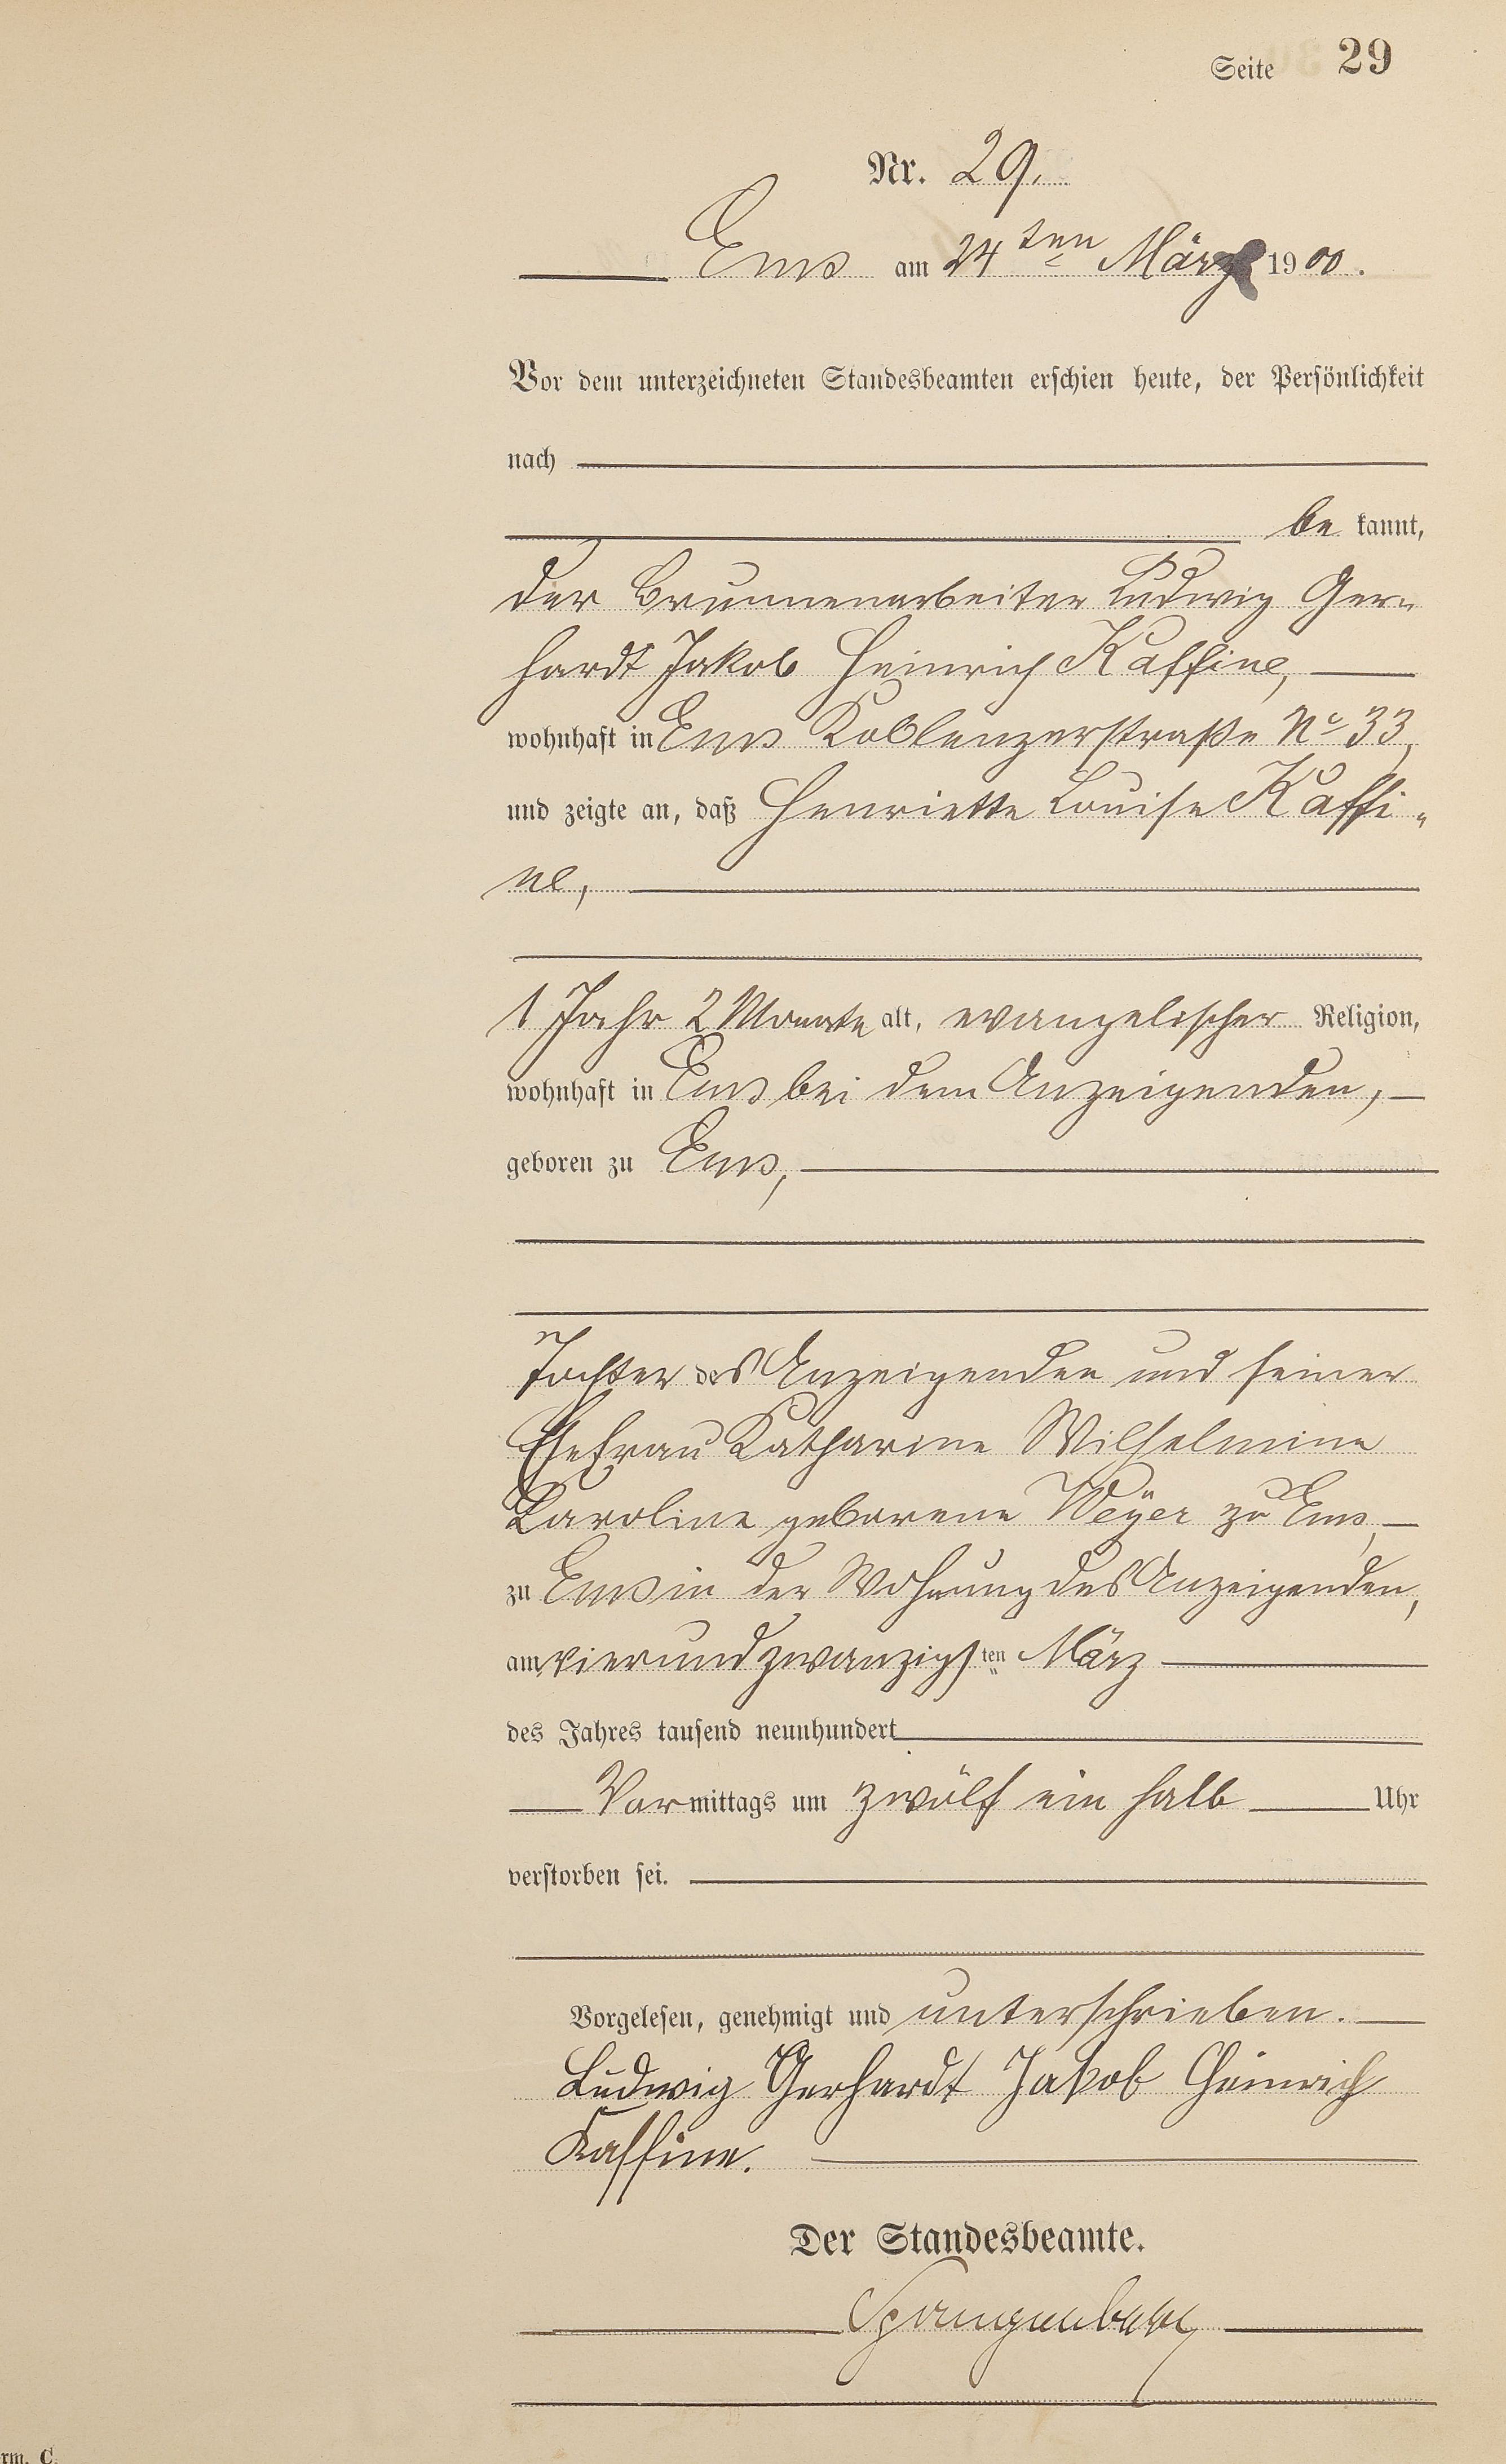 Seite 29
Nr. 29.
Ems am 24ten März 1900.
Vor dem unterzeichneten Standesbeamten erschien heute, der Persönlichkeit
nach
be kannt,
der Brunnenarbeiter Ludwig Ger-
hardt Jakob Heinrich Kaffine,
wohnhaft in Ems Koblenzerstraße No 33,
und zeigte an, daß Henriette Louise Kaffi-
ne,
1 Jahr 2 Monate alt, evangelischer Religion,
wohnhaft in Ems bei dem Anzeigenden,
geboren zu Ems,
Tochter des Anzeigenden und seiner
Ehefrau Katharine Wilhelmine
Karoline geborene Weÿer zu Ems,
zu Ems in der Wohnung des Anzeigenden,
am vierundzwanzigsten März
des Jahres tausend neunhundert
Vormittags um zwölf ein halb Uhr
verstorben sei.
Vorgelesen, genehmigt und unterschrieben.
Ludwig Gerhardt Jakob Heinrich
Kaffine.
Der Standesbeamte.
Spangenberg
rm. C.